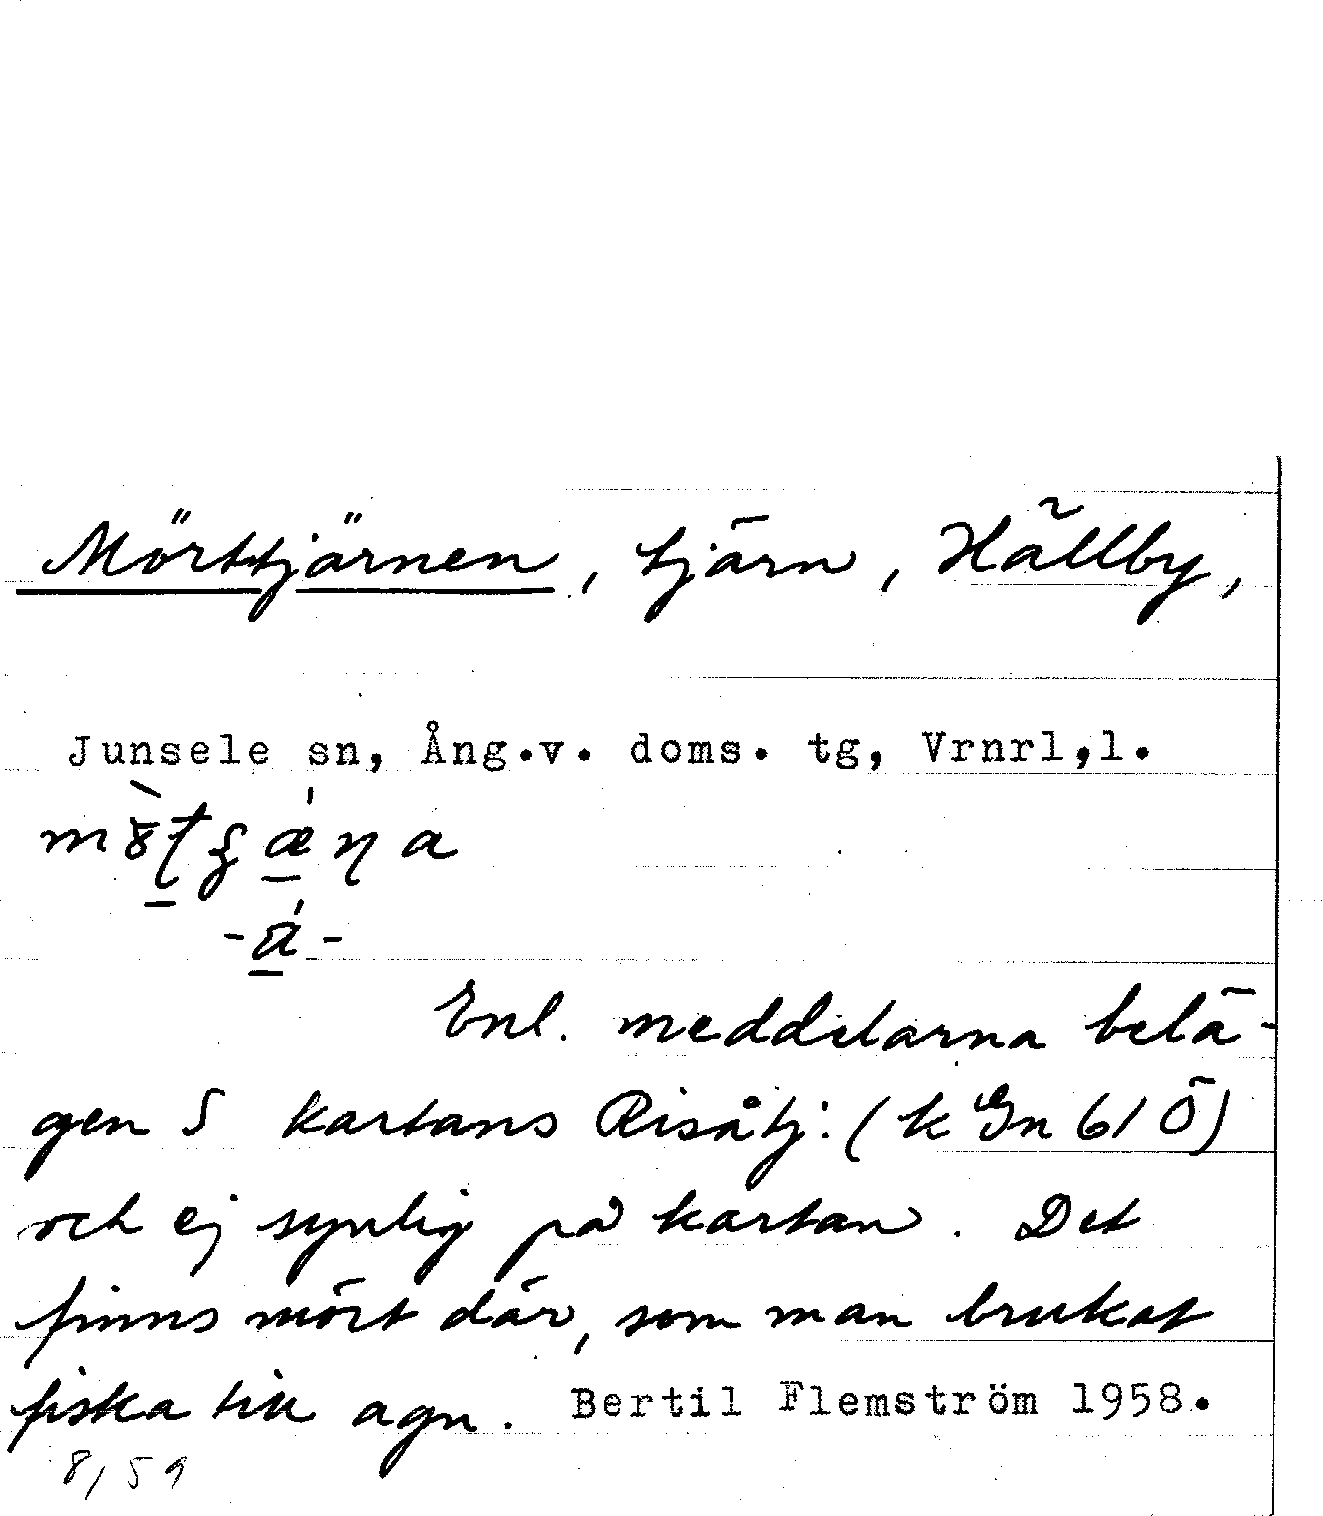 Mörttjärnen, tjärn, Hällby,
Junsele sn, Ång.v. doms. tg, Vrnrl,l.
-á-
Enl. meddelarna belä-
gen S kartans Risåtj: (k Gn 61 Ö)
och ej synlig på kartan. Det
finns mört där, som man brukat
fiska till agn. Bertil Flemström 1958.
8/59